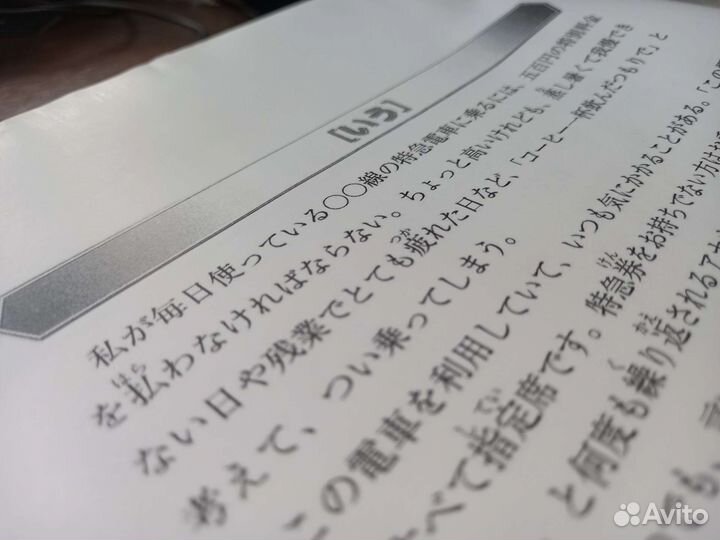 [いう]
私が毎日使っている〇〇線の特急電車に乗るには、五百円の特別料金
を払わなければならない。ちょっと高いけれども、蒸し暑くて我慢でき
ない日や残業でとても疲れた日など、「コーヒー一杯飲んだつもりで」と
考えて、つい乗ってしまう。
この電車を利用していて、いつも気にかかることがある。「この
すべて指定席です。特急券をお持ちでない方は
と何度も繰り返される
ても、
Avito